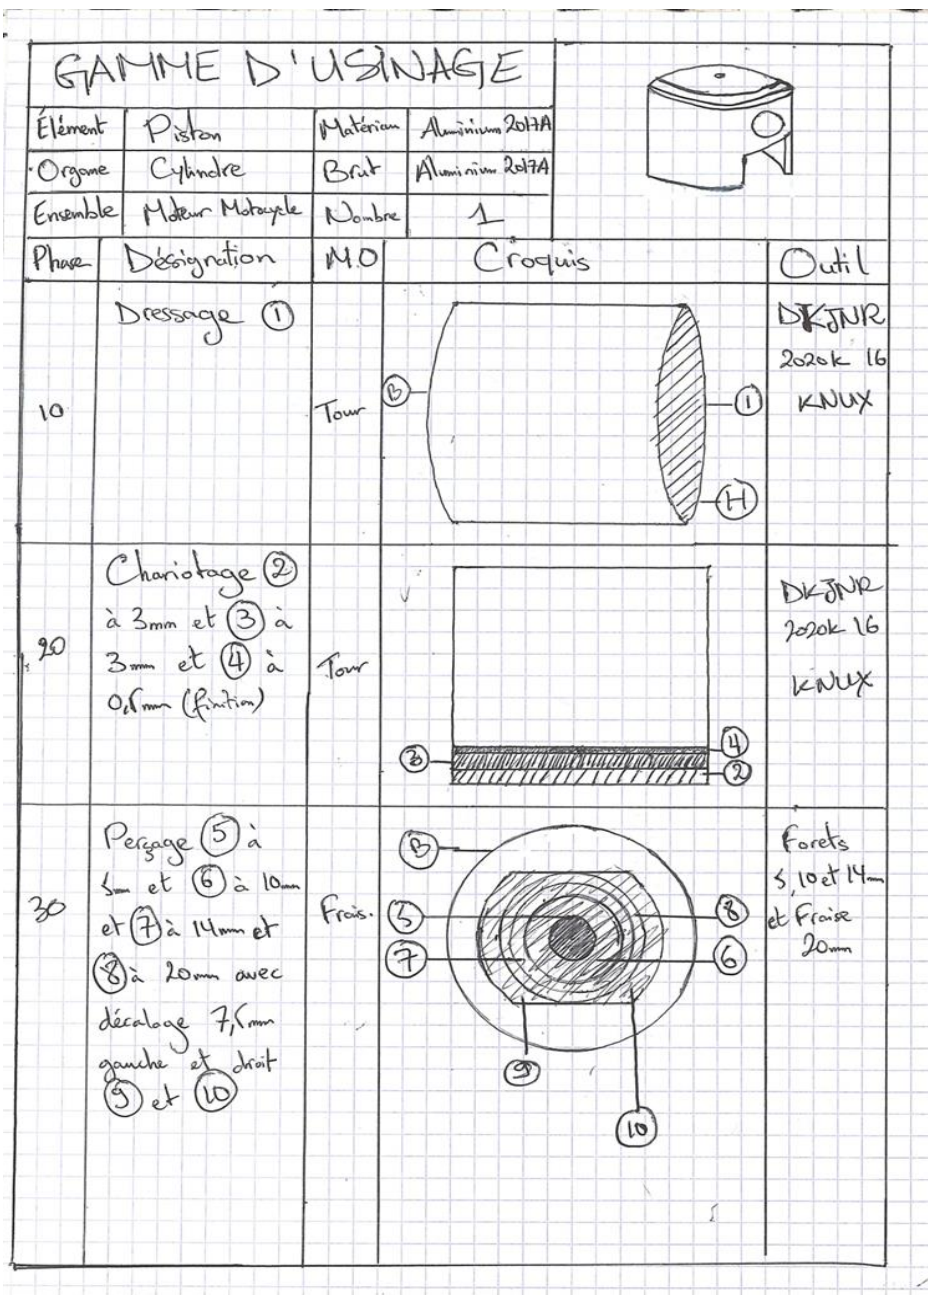 GAMME D'USINAGE
Élément Piston Matériau Aluminium 2017A
Organe Cylindre Brut Aluminium 2017A
Ensemble Moteur Motocycle Nombre 1
Phase Désignation M.O Croquis Outil
10
Dressage 1
Tour
B
1
H
DKJNR
2020K 16
KNUX
20
Chariotage 2
à 3mm et 3 à
3mm et 4 à
0,5mm (finition)
Tour
3
4
2
DKJNR
2020K 16
KNUX
30
Perçage 5 à
5mm et 6 à 10mm
et 7 à 14mm et
8 à 20mm avec
décalage 7,5mm
gauche et droit
9 et 10
Frais.
B
5
8
7
6
9
10
Forets
5, 10 et 14mm
et Fraise
20mm